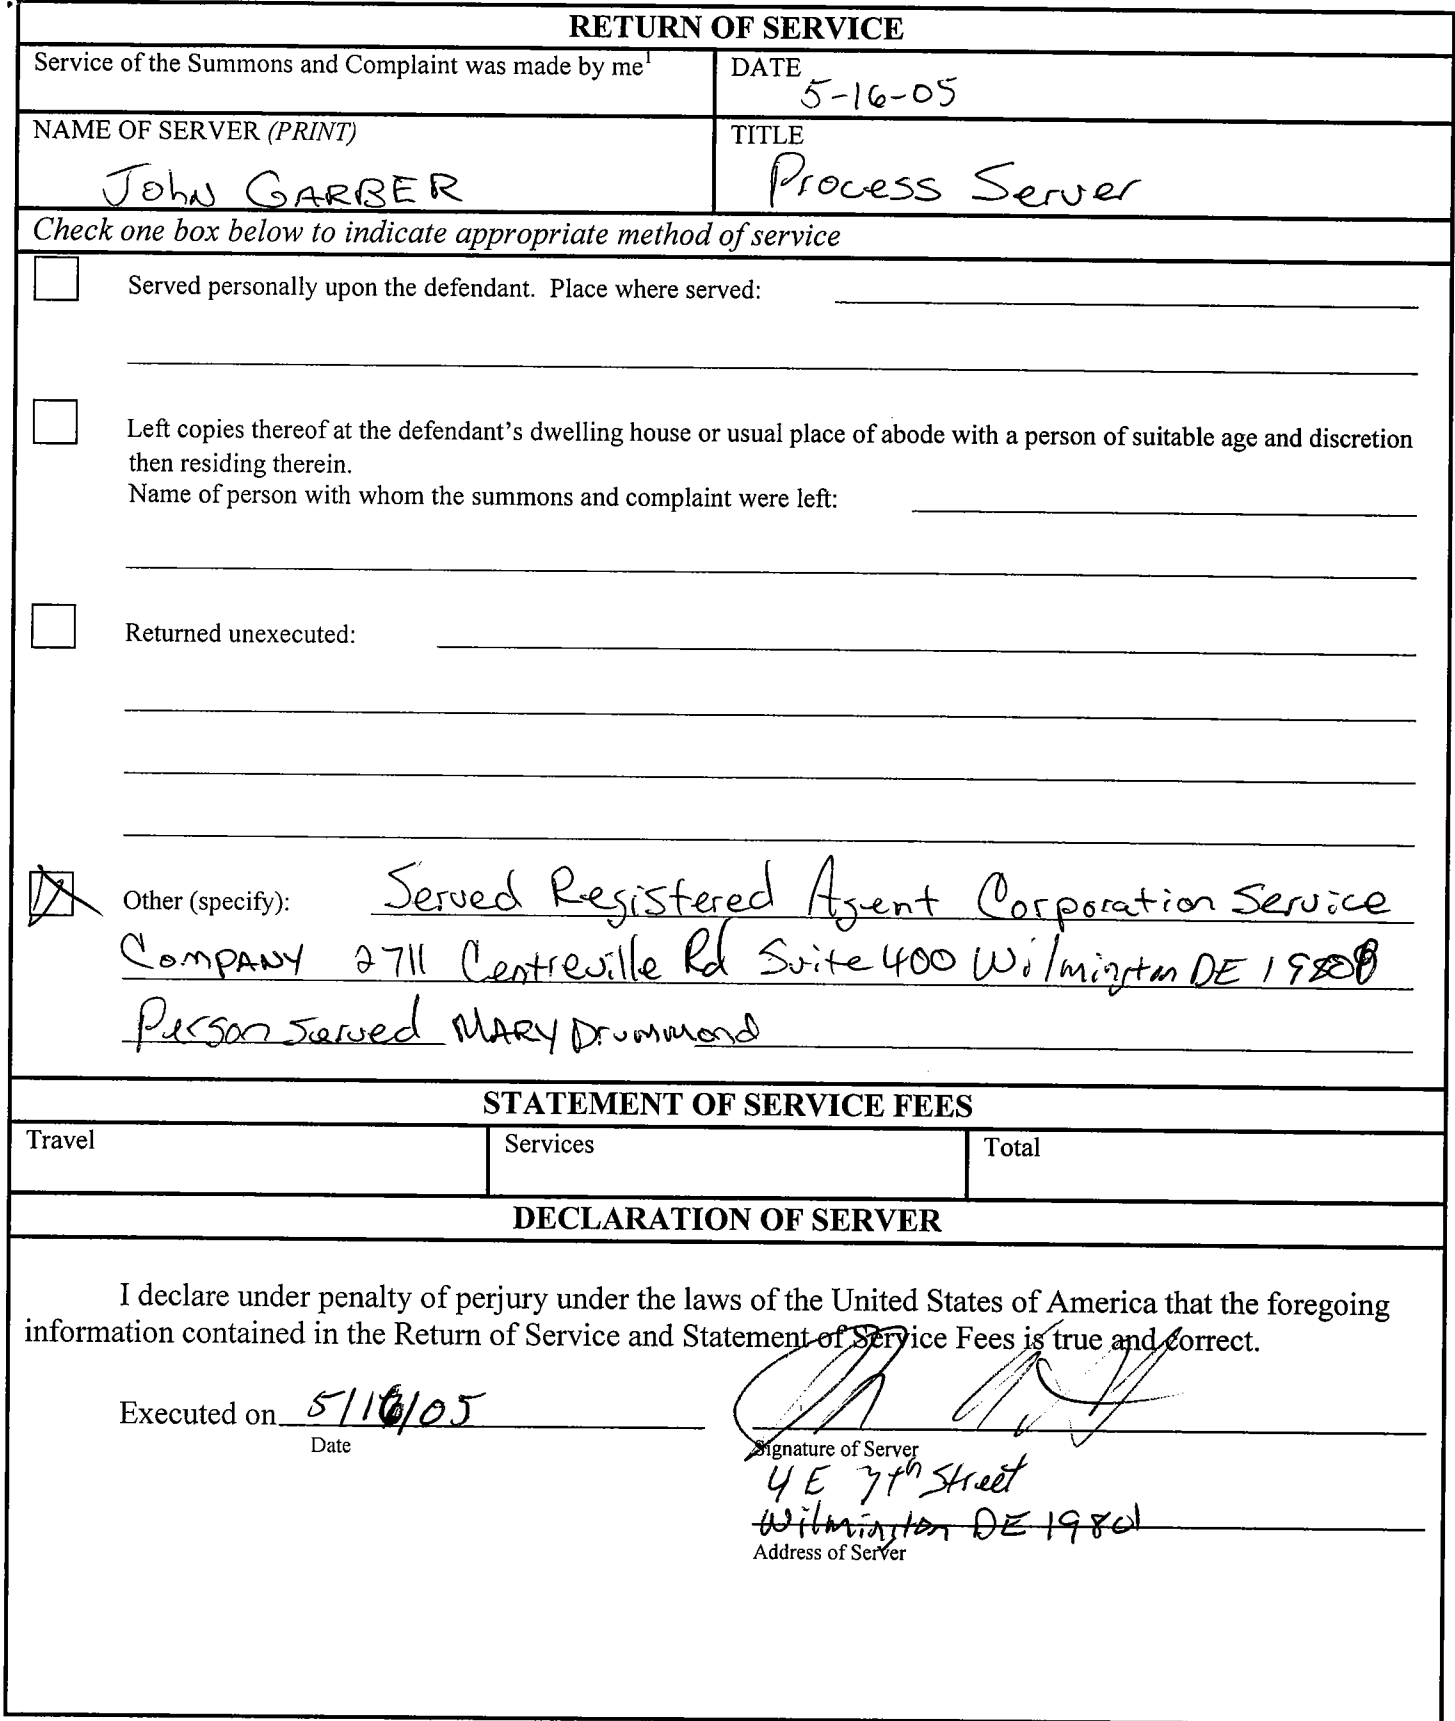 RETURN OF SERVICE
Service of the Summons and Complaint was made by me1
DATE
5-16-05
NAME OF SERVER (PRINT)
John GARBER
TITLE
Process Server
Check one box below to indicate appropriate method of service
Served personally upon the defendant. Place where served:
Left copies thereof at the defendant's dwelling house or usual place of abode with a person of suitable age and discretion
then residing therein.
Name of person with whom the summons and complaint were left:
Returned unexecuted:
Other (specify): Served Registered Agent Corporation Service
Company 2711 Centreville Rd Suite 400 Wilmington DE 19808
Person Served MARY Drummond
STATEMENT OF SERVICE FEES
Travel
Services
Total
DECLARATION OF SERVER
I declare under penalty of perjury under the laws of the United States of America that the foregoing
information contained in the Return of Service and Statement of Service Fees is true and correct.
Executed on 5/16/05
Date
Signature of Server
4 E 7th Street
Wilmington DE 19801
Address of Server